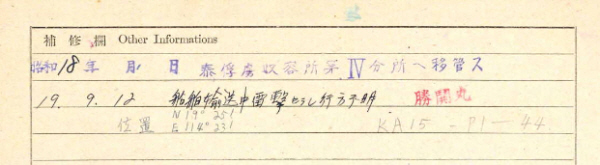 補修欄 Other Informations
昭和18年 月 日 泰俘虜収容所第Ⅳ分所へ移管ス
19. 9. 12 船舶輸送中雷撃セラレ行方不明 勝鬨丸
位置 N 19° 25′
E 114° 23′ KA15-P1-44